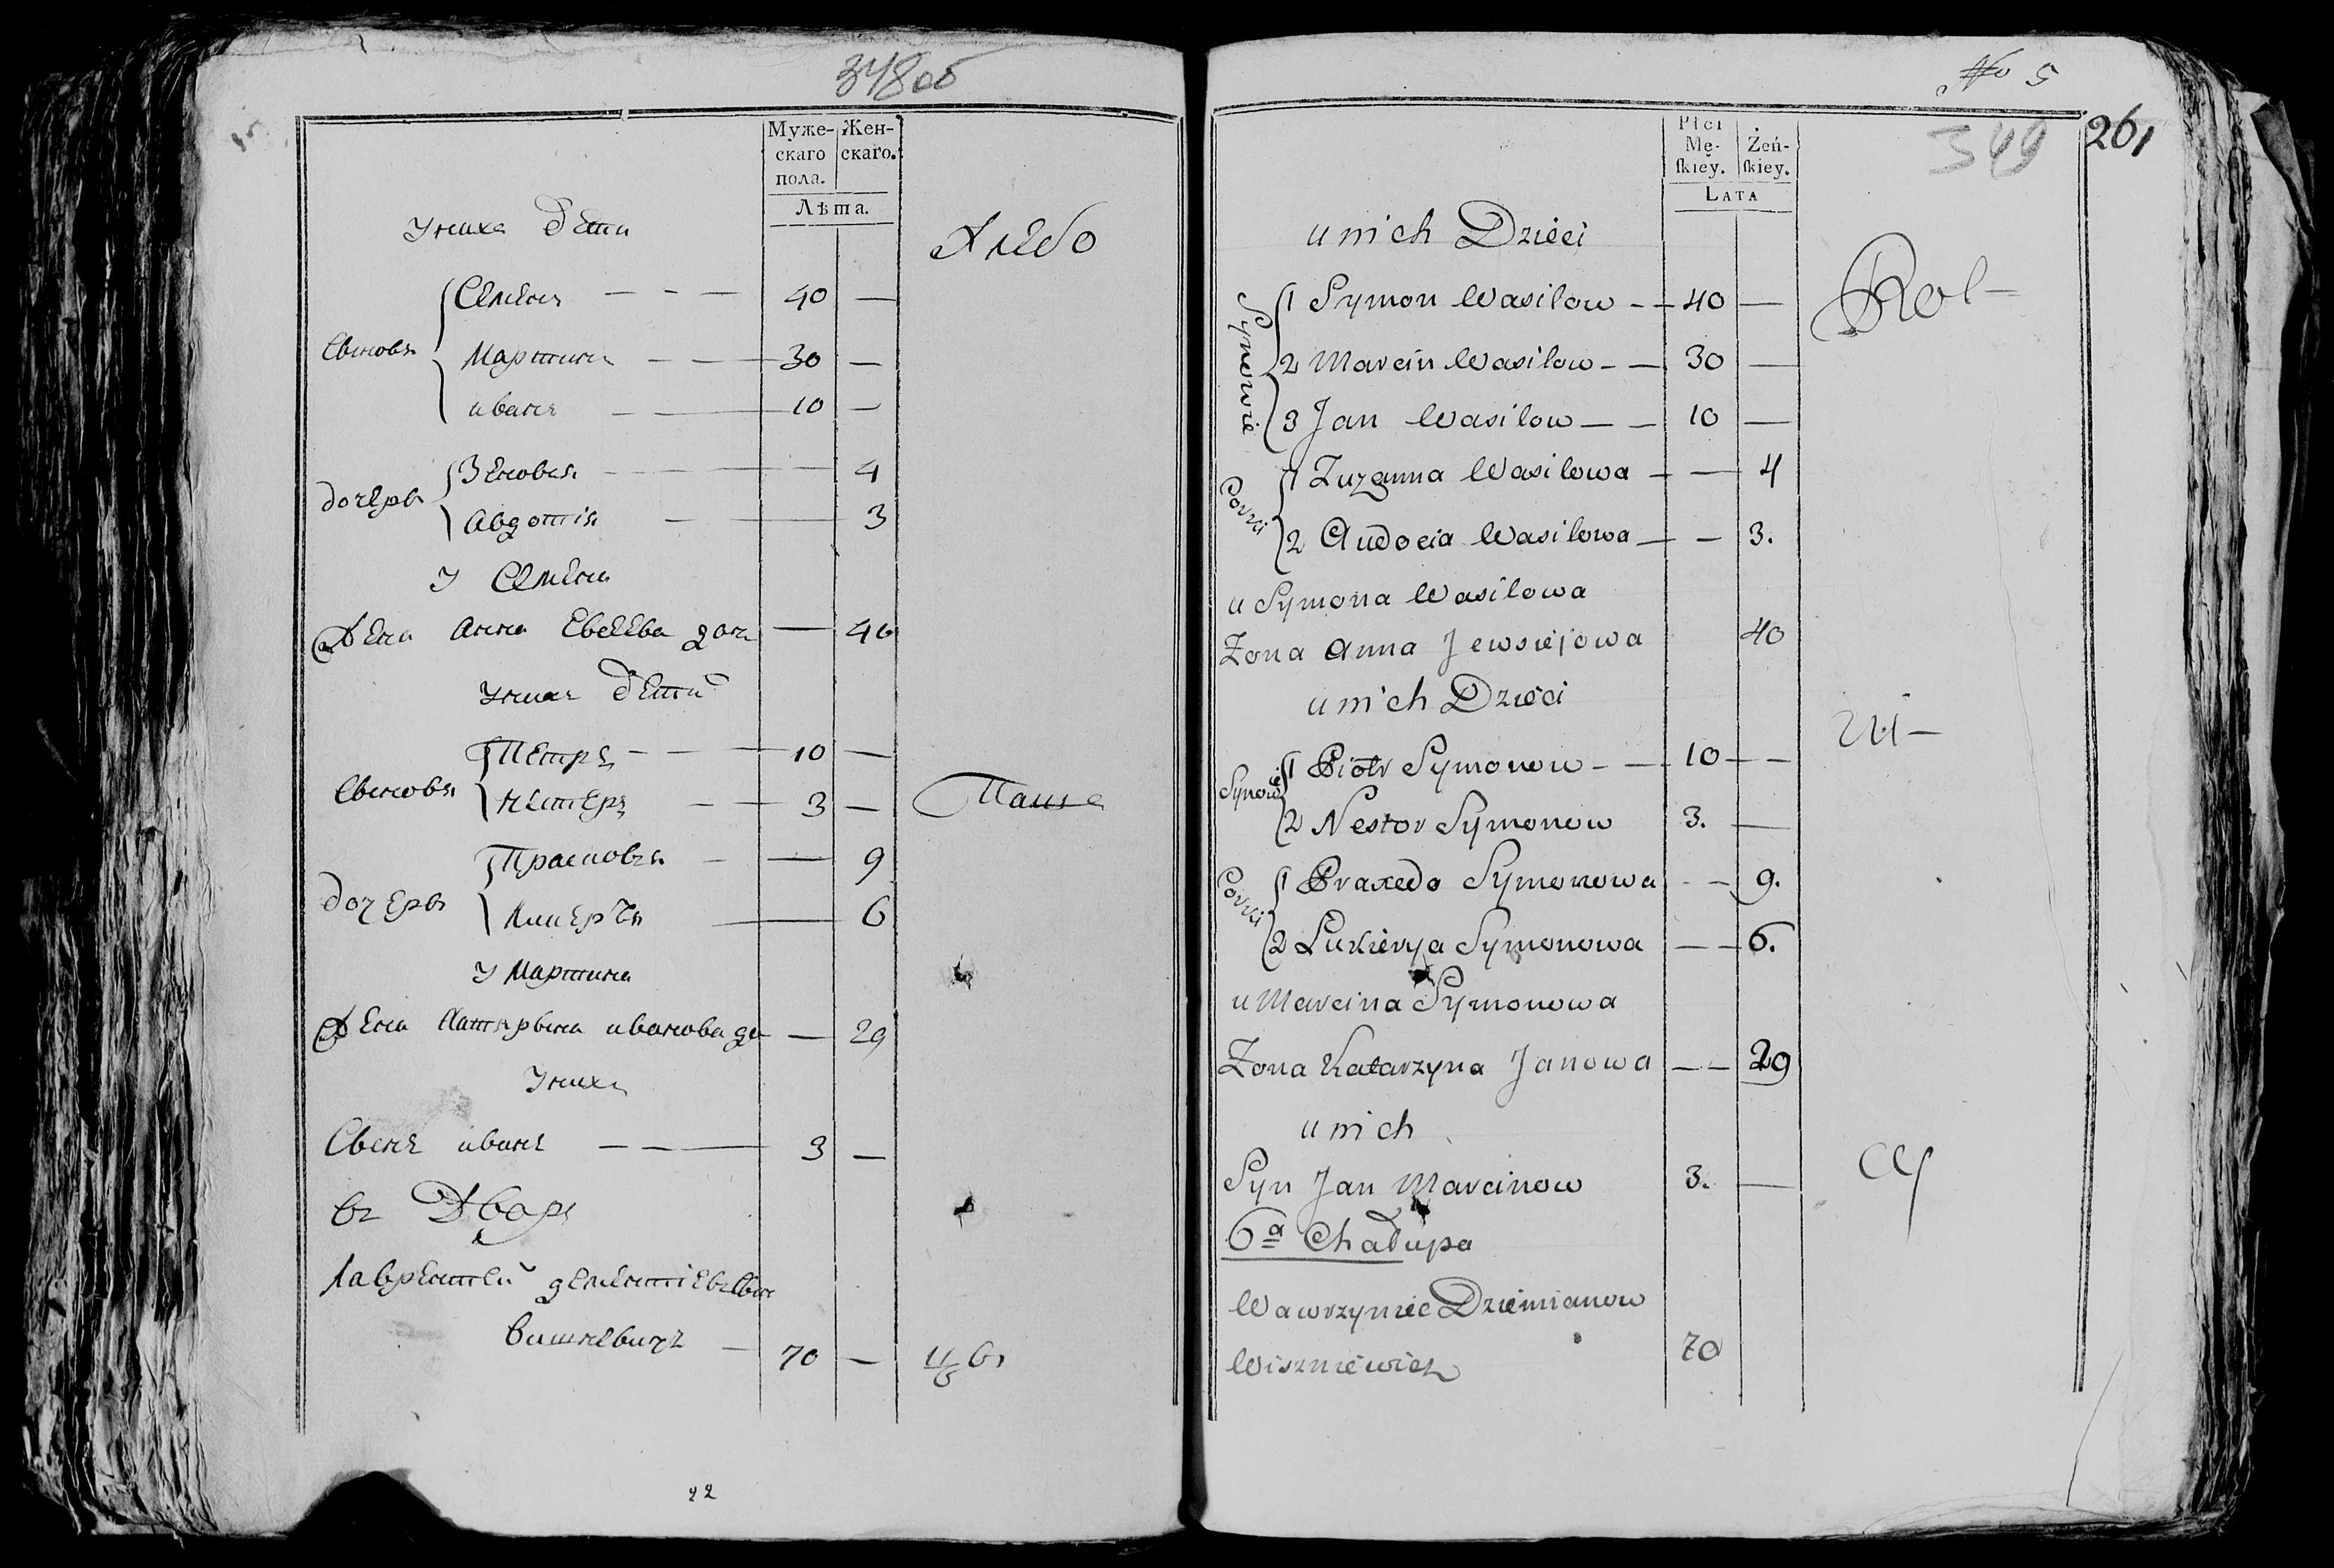 348об
Муже-
скаго
пола.
Жен-
скаго.
Лѣта.
Униха дети
Хлебо
Сыновья
Семенъ — — — 40 —
Мартинъ — — 30 —
иванъ — — 10 —
дочеры
Зеновья — — 4
Авдотія — — 3
У Семена
Жена Анна Евсеева доч — 40
Унихъ дети
Сыновья
Петръ — — — 10 —
нестеръ — — 3 —
Паше
дочеры
Прасковья — — 9
— 6
У Мартина
Жена Катярына иванова до — 29
Унихъ
Сынъ иванъ — — — 3 —
въ Дворе
Лаврентей дементіевъ сын
Вишневичъ — 70 —
22
No 5
261
349
Płci
Mę-
skiey.
Żeń-
skiey.
LATA
u nich Dzieci
Rol-
Synowie
1 Symon Wasilow — — 40 —
2 Marcin Wasilow — — 30 —
3 Jan Wasilow — — 10 —
Corki
1 Zuzanna Wasilowa — — 4
2 Audocia Wasilowa — — 3.
u Symona Wasilowa
Zona Anna Jewsiejowa 40
u nich Dzieci
ni-
Synowie
1 Piotr Symonow — — 10 — —
2 Nestor Symonow 3. —
Corki
1 Praxeda Symonowa — — 9.
2 Lukierya Symonowa — — 6.
u Marcina Symonowa
Zona Katarzyna Janowa — — 29
u nich
Syn Jan Marcinow 3. —
cy
6a Chałupa
Wawrzyniec Dziemianow
Wiszniewicz 70